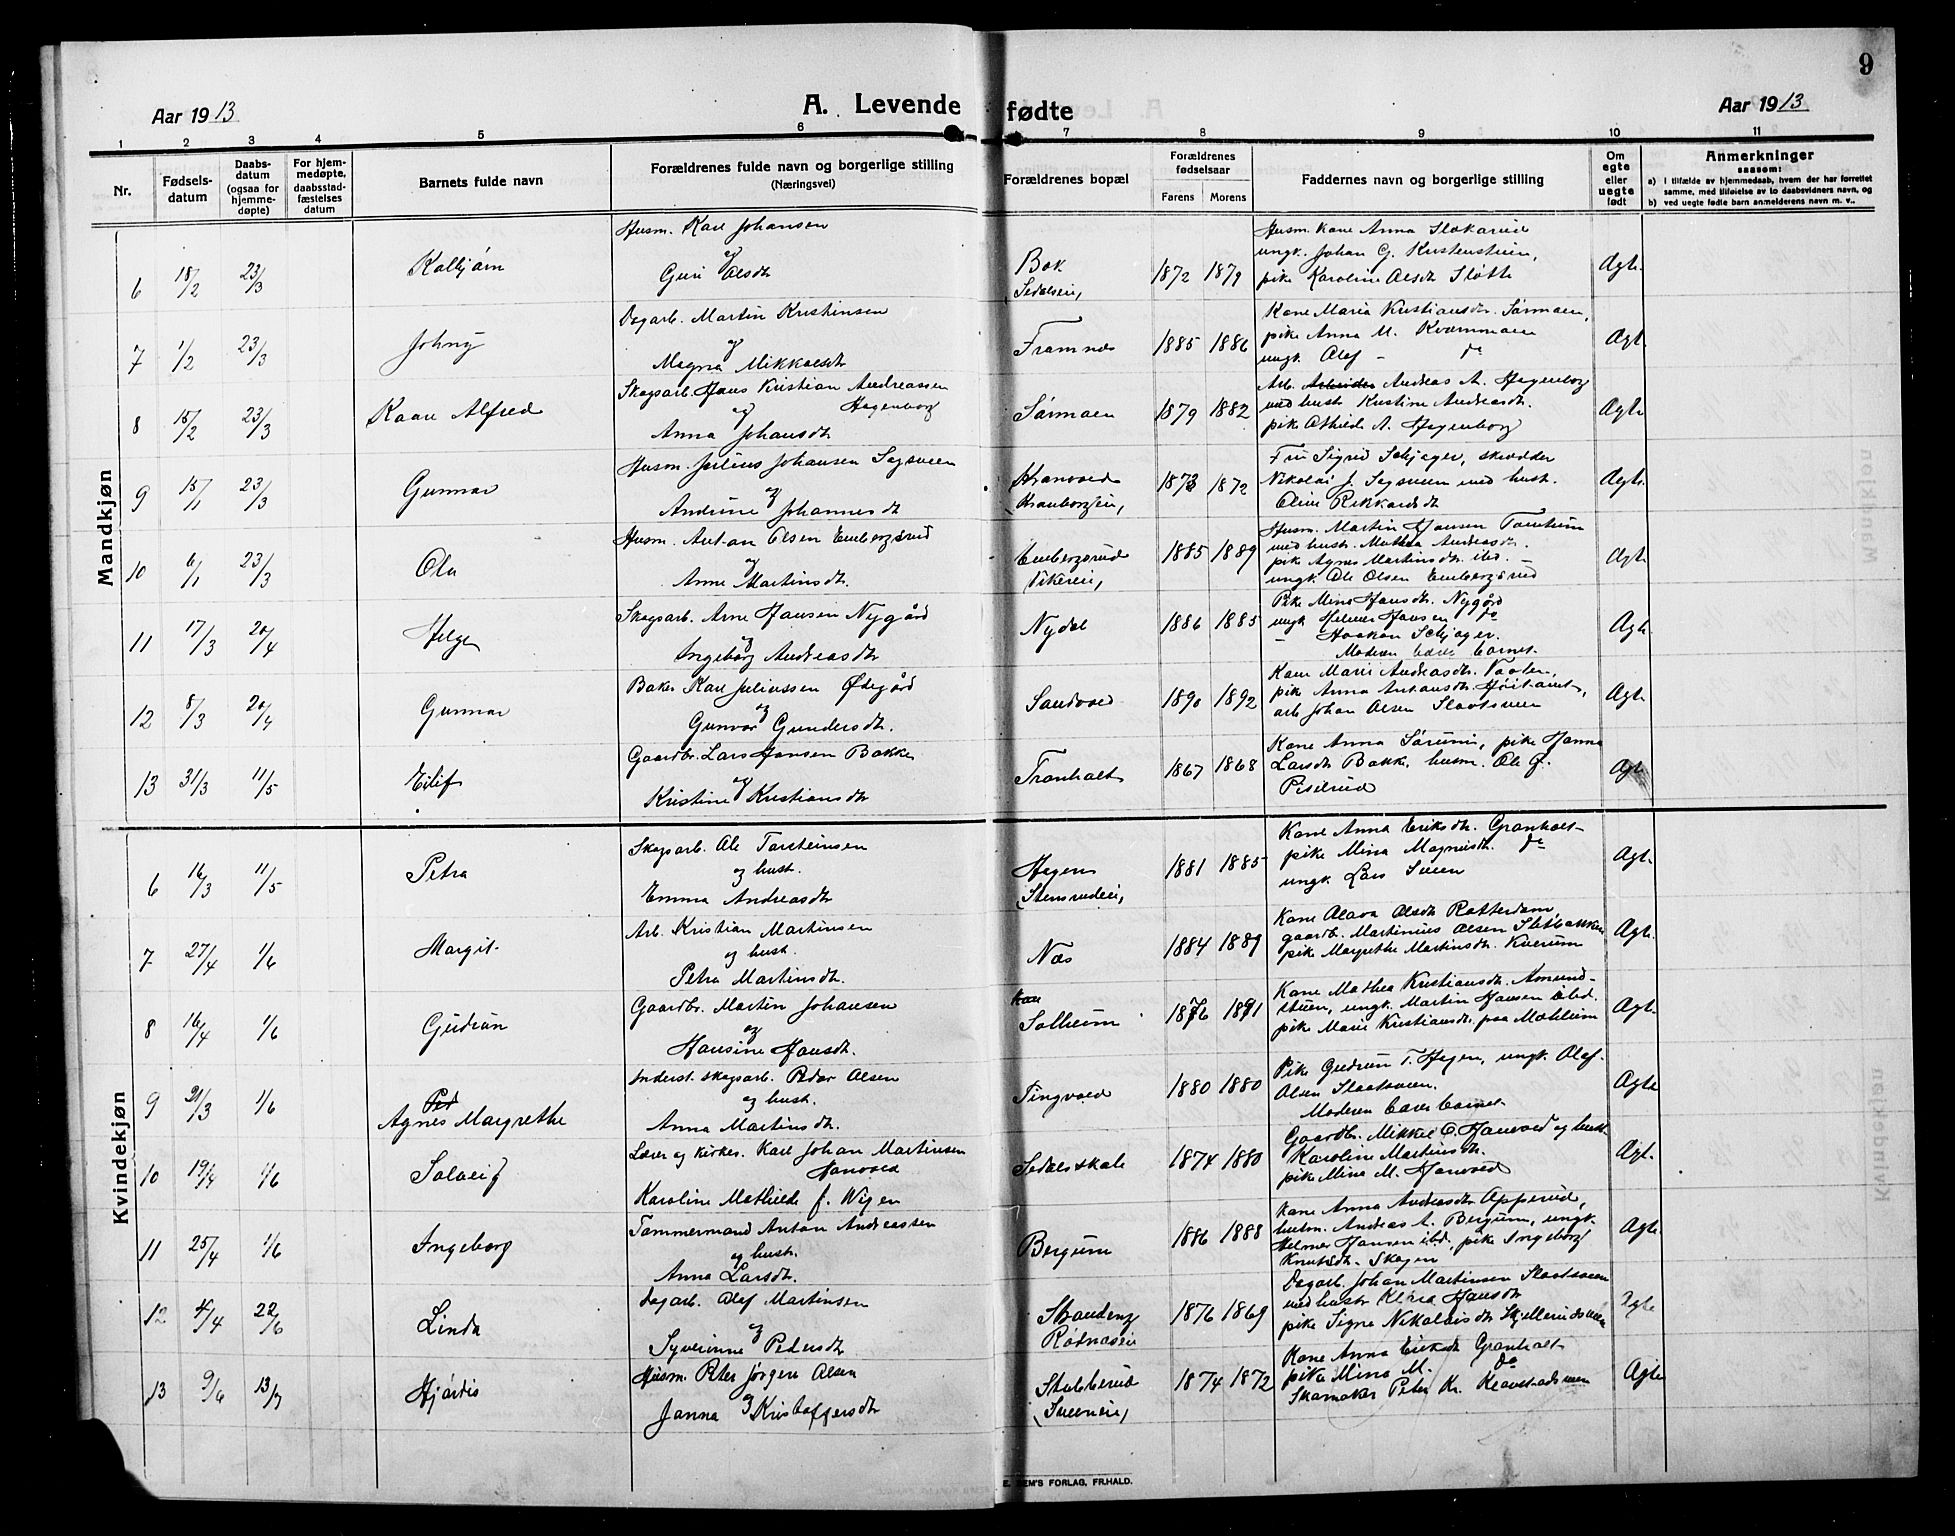 9
Aar 1913
A. Levende fødte
Aar 1913
1 2 3 4 5 6 7 8 9 10 11
Nr.
Fødsels-
datum
Daabs-
datum
(ogsaa for
hjemme-
døpte)
For hjem-
medøpte,
daabsstad-
fæstelses
datum
Barnets fulde navn
Forældrenes fulde navn og borgerlige stilling
(Næringsvei)
Forældrenes bopæl
Forældrenes
fødselsaar
Farens Morens
Faddernes navn og borgerlige stilling
Om
egte
eller
uegte
født
Anmerkninger
saasom:
a) i tilfælde av hjemmedaab, hvem der har forrettet
samme, med tilføielse av to daabsvidners navn, og
b) ved uegte fødte barn anmelderens navn m. v..
Mandkjøn
6 18/2 23/3 Kolbjørn
Husm. Karl Johansen
og
Guri Olsdt
Bak
1872 1879
Husm. kone Anna Slokarud
ungk. Johan G. Kristenstuen,
pike Karoline Olsdt Sløtte
Agte
7 1/2 23/3 Johny
Dagarb. Martin Kristinsen
og
Magna Mikkelsdt
Framnæs
1885 1886
Kone Maria Kristiansdt. Sørmoen,
pike Anna M. Kvæmmoen
ungk. Olaf - do
Agt.
8 15/2 23/3 Kaare Alfred
Skogsarb. Hans Kristian Andreassen
og Hagenborg
Anna Johansdt
Sørmoen
1879 1882
Arb. Andreas A. Hagenborg
med hust. Kristine Andreasdt.
pike Othilde A. Hagenborg
Agte
9 15/1 23/3 Gunnar
Husm. Julius Johansen Sagsveen
og
Andrine Johannesdt
1873 1872
Fru Sigrid Schjager, skrædder
Nikolai J. Sagsveen med hust.
Oline Rikkardsdt
Agte
10 6/1 23/3 Ola
Husm. Anton Olsen Embergsrud
og
Anne Martinsdt.
Embergsrud
Vikereie,
1885 1889
Husm. Martin Hansen
med hust. Mathea Andreasdt.
pike Agnes Martinsdt. ibd.
ungk. Ole Olsen Embergsrud
Agt.
11 17/3 20/4 Helge
Skogsarb. Arne Hansen Nygård
og
Ingeborg Andreasdt
Nydal
1886 1885
Pike Mina Hansdt. Nygård
ungk Helmer Hansen do
- Haakon Schjager.
Moderen barer barnet.
Agt.
12 8/3 20/4 Gunnar
Baker Karl Juliussen Ødegård
og
Gunvor Gundersdt.
Sandvold
1890 1892
Kone Marie Andreasdt. Vaaler,
pike Anna Antonsdt.
arb Johan Olsen Slaatsveen
Agt
13 31/3 11/5 Eilif
Gaardbr. Lars Hansen Bakke
og
Kristine Kristiansdt
Tranholt
1867 1868
Kone Anna Sørumi, pike Hanna
Larsdt Bakke, husm. Ole J.
Piselrud
Agt
Kvindekjøn
6 16/3 11/5 Petra
Skogsarb. Ole Torsteinsen
og hust.
Emma Andreasdt
Hagen
(Stensrudeie,
1881 1885
Kone Anna Eriksdt. Granholt
pike Mina Magnusdt. do
ungk Lars Sveen
Agt.
7 27/4 1/6 Margit
Arb. Kristian Martinsen
og hust.
Petra Martinsdt.
Næs
1884 1889
Kone Olava Olsdt Rotterdam,
gaardb. Martinius Olsen Slotbakken
pike Margrethe Martinsdt. Kverum
Agt.
8 16/4 1/6 Gudrun
Gaardbr. Martin Johansen
og
Hansine Hansdt.
Solheim
1876 1881
Kone Mathea Kristiansdt. Amund-
stuen, ungk. Martin Hansen ibid.
pike Marie Kristiansdt. paa Mohleim
Agt.
9 21/3 1/6 Agnes Margrethe
Inderst. skogsarb. Peder Olsen
og hust.
Anna Martinsdt.
Tingvold
1880 1880
Pike Gudrun T. Hagen, ungk. Olaf
Olsen Slaatsveen.
Moderen barer barnet
Agte
10 19/4 1/6 Solveig
Lærer og kirkes. Karl Johan Martinsen
Hanvold
Karoline Mathilde f. Wigen
Sedalsskole
1874 1880
Gaardbr. Mikkel O. Hanvold og hust.
Karoline Martinsdt.
pike Mina M. Hanvold
Agt.
11 25/4 1/6 Ingeborg
Tømmermand Anton Andreassen
og hust.
Anna Larsdt.
Bergum
1886 1888
Kone Anna Andreasdt. Opperud,
husm. Andreas A. Bergum, ungk.
Helmer Hansen ibd, pike Ingeborg
Knutsdt. Skogen
Agte
12 4/4 22/6 Linda
Dagarb. Olaf Martinsen
og
Syverinne Pedersdt
Strandeng
Rødnæseie
1876 1869
Dagarb. Johan Martinsen Slaatsveen
med hustr Klara Hansdt
pike Signe Nikolaisdt Skjellerudsveen
Agte
13 9/6 13/7 Hjørdis
Husm. Peter Jørgen Olsen
og
Janna Kristoffersdt
Stubberud
(Sveeneie,
1874 1872
Kone Anna Eriksdt Granholt
pike Mina M. do
Skomaker Peter Kr. Klavestadsveen
Agte
E. SEM'S FORLAG, FR.HALD.